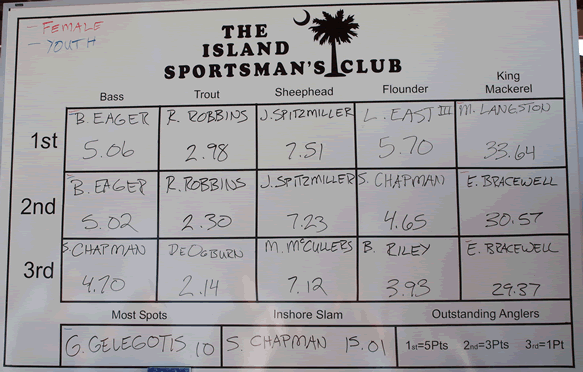 - FEMALE
- YOUTH
THE
ISLAND
SPORTSMAN'S CLUB
Bass Trout Sheephead Flounder King Mackerel
1st B. EAGER R. ROBBINS J. SPITZMILLER L. EAST III M. LANGSTON
5.06 2.98 7.51 5.70 33.64
2nd B. EAGER R. ROBBINS J. SPITZMILLER S. CHAPMAN E. BRACEWELL
5.02 2.30 7.23 4.65 30.57
3rd S. CHAPMAN DEOGBURN M. McCULLERS B. RILEY E. BRACEWELL
4.70 2.14 7.12 3.93 29.37
Most Spots Inshore Slam Outstanding Anglers
G. GELEGOTIS 10 S. CHAPMAN 15.01 1st=5Pts 2nd=3Pts 3rd=1Pt